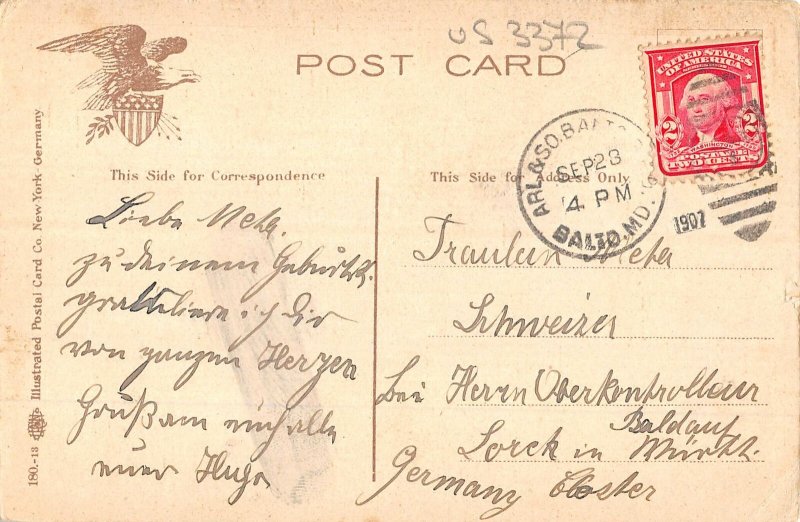 US 3372
POST CARD
UNITED STATES OF AMERICA
2 2
WASHINGTON
POSTAGE
TWO CENTS
SEP 23
4 PM
BALTO. MD.
1907
This Side for Correspondence
This Side for Address Only
Liebe Meta.
zu deinem Geburtst.
gratuliere ich dir
von ganzem Herzen
Gruß an euch alle
euer Hugo
Fraulein Meta
Schweizer
Bei Herrn Oberkontrolleur
Baldauf
Lorch in Württ.
Germany Kloster
180.-13 Illustrated Postal Card Co. New York-Germany